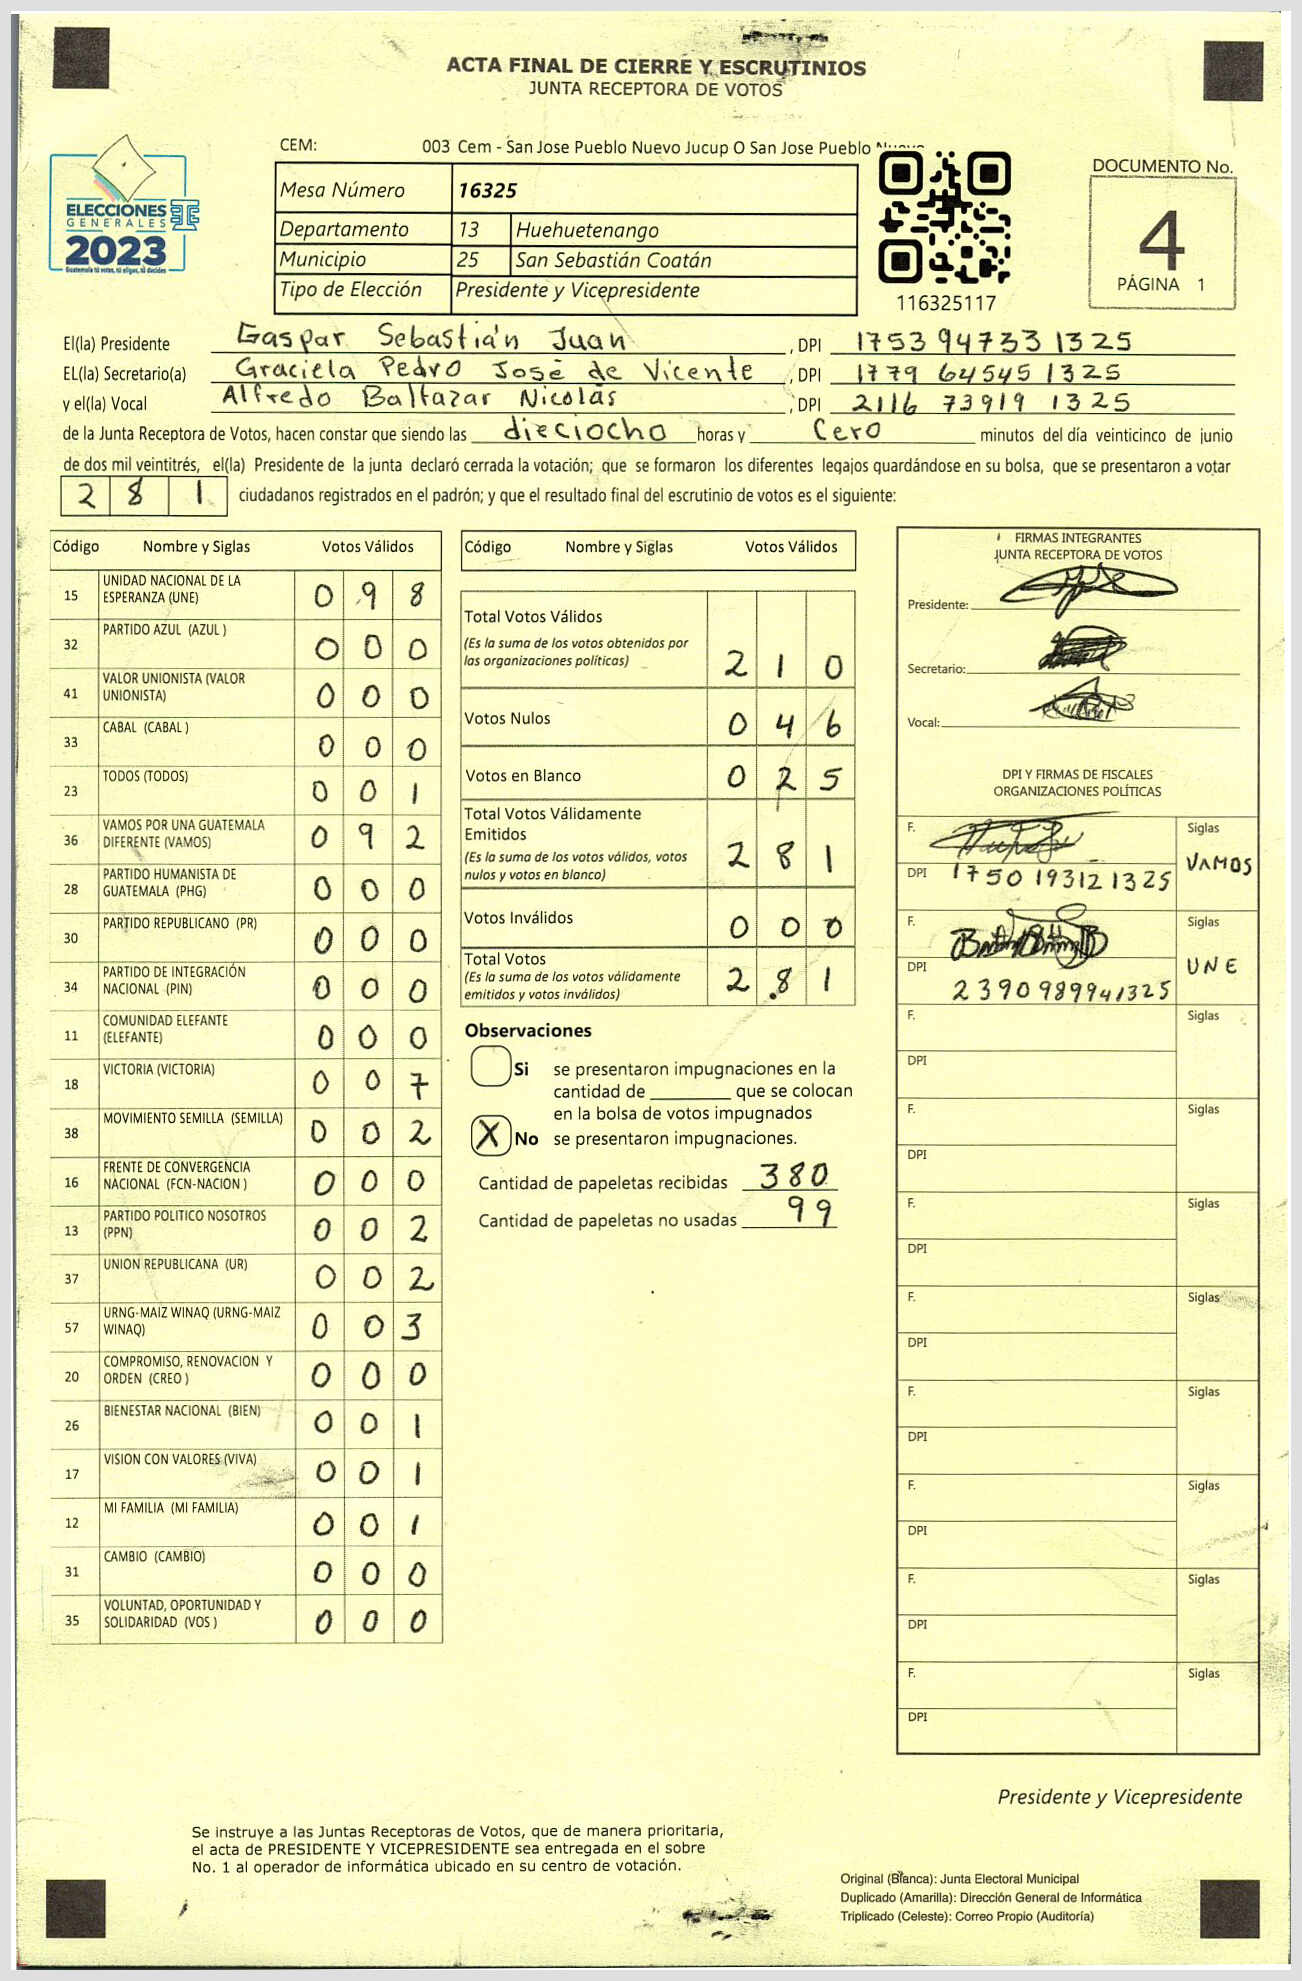 ACTA FINAL DE CIERRE Y ESCRUTINIOS
JUNTA RECEPTORA DE VOTOS
CEM: 003 Cem - San Jose Pueblo Nuevo Jucup O San Jose Pueblo
ELECCIONES
GENERALES
2023
Guatemala tú votas, tú eliges, tú decides
Mesa Número 16325
Departamento 13 Huehuetenango
Municipio 25 San Sebastián Coatán
Tipo de Elección Presidente y Vicepresidente
116325117
DOCUMENTO No.
4
PÁGINA 1
El(la) Presidente Gaspar Sebastián Juan , DPI 1753 94733 1325
EL(la) Secretario(a) Graciela Pedro José de Vicente , DPI 1779 64545 1325
y el(la) Vocal Alfredo Baltazar Nicolás , DPI 2116 73919 1325
de la Junta Receptora de Votos, hacen constar que siendo las dieciocho horas y Cero minutos del día veinticinco de junio
de dos mil veintitrés, el(la) Presidente de la junta declaró cerrada la votación; que se formaron los diferentes legajos guardándose en su bolsa, que se presentaron a votar
2 8 1 ciudadanos registrados en el padrón; y que el resultado final del escrutinio de votos es el siguiente:
Código Nombre y Siglas Votos Válidos
15 UNIDAD NACIONAL DE LA
ESPERANZA (UNE) 0 9 8
32 PARTIDO AZUL (AZUL ) 0 0 0
41 VALOR UNIONISTA (VALOR
UNIONISTA) 0 0 0
33 CABAL (CABAL ) 0 0 0
23 TODOS (TODOS) 0 0 1
36 VAMOS POR UNA GUATEMALA
DIFERENTE (VAMOS) 0 9 2
28 PARTIDO HUMANISTA DE
GUATEMALA (PHG) 0 0 0
30 PARTIDO REPUBLICANO (PR) 0 0 0
34 PARTIDO DE INTEGRACIÓN
NACIONAL (PIN) 0 0 0
11 COMUNIDAD ELEFANTE
(ELEFANTE) 0 0 0
18 VICTORIA (VICTORIA) 0 0 7
38 MOVIMIENTO SEMILLA (SEMILLA) 0 0 2
16 FRENTE DE CONVERGENCIA
NACIONAL (FCN-NACION ) 0 0 0
13 PARTIDO POLITICO NOSOTROS
(PPN) 0 0 2
37 UNION REPUBLICANA (UR) 0 0 2
57 URNG-MAIZ WINAQ (URNG-MAIZ
WINAQ) 0 0 3
20 COMPROMISO, RENOVACION Y
ORDEN (CREO ) 0 0 0
26 BIENESTAR NACIONAL (BIEN) 0 0 1
17 VISION CON VALORES (VIVA) 0 0 1
12 MI FAMILIA (MI FAMILIA) 0 0 1
31 CAMBIO (CAMBIO) 0 0 0
35 VOLUNTAD, OPORTUNIDAD Y
SOLIDARIDAD (VOS ) 0 0 0
Código Nombre y Siglas Votos Válidos
Total Votos Válidos
(Es la suma de los votos obtenidos por
las organizaciones políticas) 2 1 0
Votos Nulos 0 4 6
Votos en Blanco 0 2 5
Total Votos Válidamente
Emitidos
(Es la suma de los votos válidos, votos
nulos y votos en blanco) 2 8 1
Votos Inválidos 0 0 0
Total Votos
(Es la suma de los votos válidamente
emitidos y votos inválidos) 2 8 1
Observaciones
Si se presentaron impugnaciones en la
cantidad de ________ que se colocan
en la bolsa de votos impugnados
X No se presentaron impugnaciones.
Cantidad de papeletas recibidas 380
Cantidad de papeletas no usadas 99
FIRMAS INTEGRANTES
JUNTA RECEPTORA DE VOTOS
Presidente:
Secretario:
Vocal:
DPI Y FIRMAS DE FISCALES
ORGANIZACIONES POLÍTICAS
F. Siglas
VAMOS
DPI 1750 19312 1325
F. Siglas
UNE
DPI
2390989941325
F. Siglas
DPI
F. Siglas
DPI
F. Siglas
DPI
F. Siglas
DPI
F. Siglas
DPI
F. Siglas
DPI
F. Siglas
DPI
F. Siglas
DPI
Presidente y Vicepresidente
Se instruye a las Juntas Receptoras de Votos, que de manera prioritaria,
el acta de PRESIDENTE Y VICEPRESIDENTE sea entregada en el sobre
No. 1 al operador de informática ubicado en su centro de votación.
Original (Blanca): Junta Electoral Municipal
Duplicado (Amarilla): Dirección General de Informática
Triplicado (Celeste): Correo Propio (Auditoría)